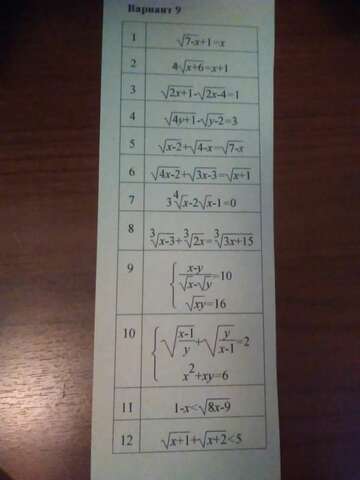 Вариант 9
1 √7-x+1=x
2 4·√x+6=x+1
3 √2x+1-√2x-4=1
4 √4y+1-√y-2=3
5 √x-2+√4-x=√7-x
6 √4x-2+√3x-3=√x+1
7 3⁴√x-2√x-1=0
8 ³√x-3+³√2x=³√3x+15
9 { x-y/√x-√y=10
√xy=16
10 { √x-1/y+√y/x-1=2
x²+xy=6
11 1-x<√8x-9
12 √x+1+√x+2<5